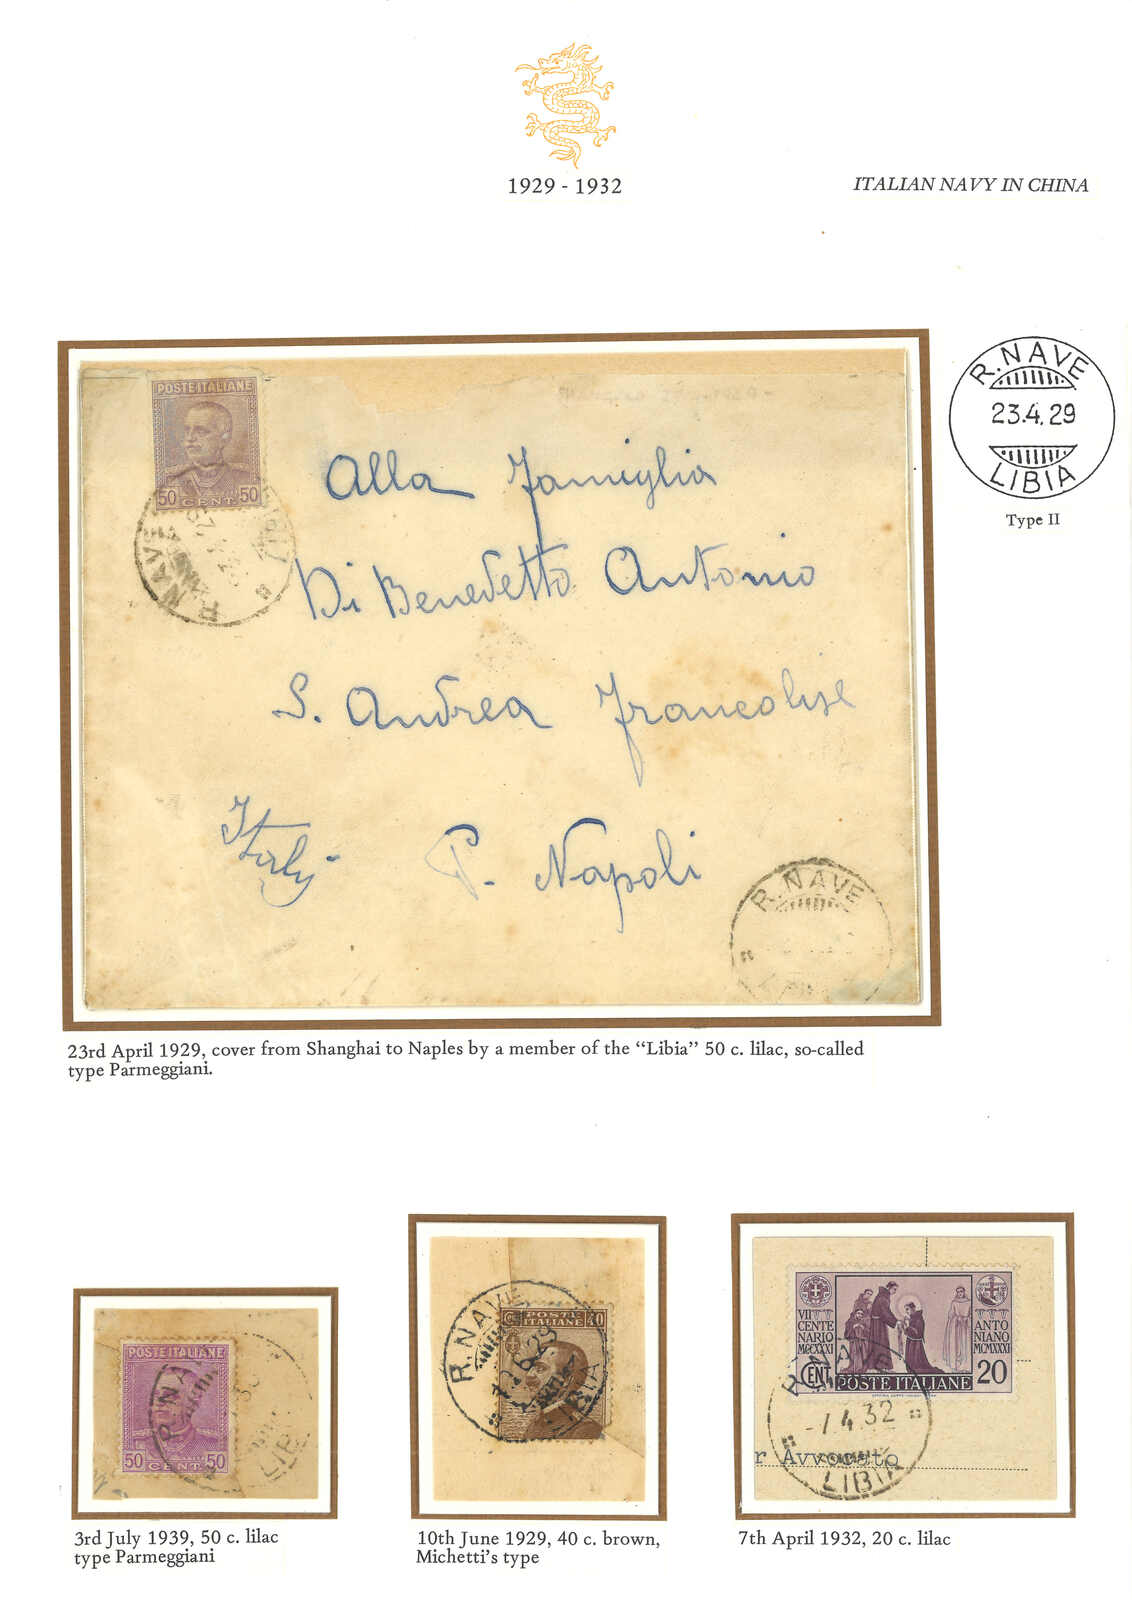 1929 - 1932
ITALIAN NAVY IN CHINA
POSTE ITALIANE
50 CENT. 50
R. NAVE
Alla Famiglia
Di Benedetto Antonio
S. Andrea Francolise
Italy P. Napoli
R. NAVE
R. NAVE
23.4.29
LIBIA
Type II
23rd April 1929, cover from Shanghai to Naples by a member of the “Libia” 50 c. lilac, so-called
type Parmeggiani.
POSTE ITALIANE
50 CENT. 50
R. NA
LIB
3rd July 1939, 50 c. lilac
type Parmeggiani
R. NAVE
POSTE
ITALIANE
40
LIBIA
10th June 1929, 40 c. brown,
Michetti's type
VII
CENTE
NARIO
MCCXXXI
ANTO
NIANO
MCMXXXI
CENT POSTE ITALIANE 20
R. NAV
-7 4 32
r Avvocato
LIBIA
7th April 1932, 20 c. lilac